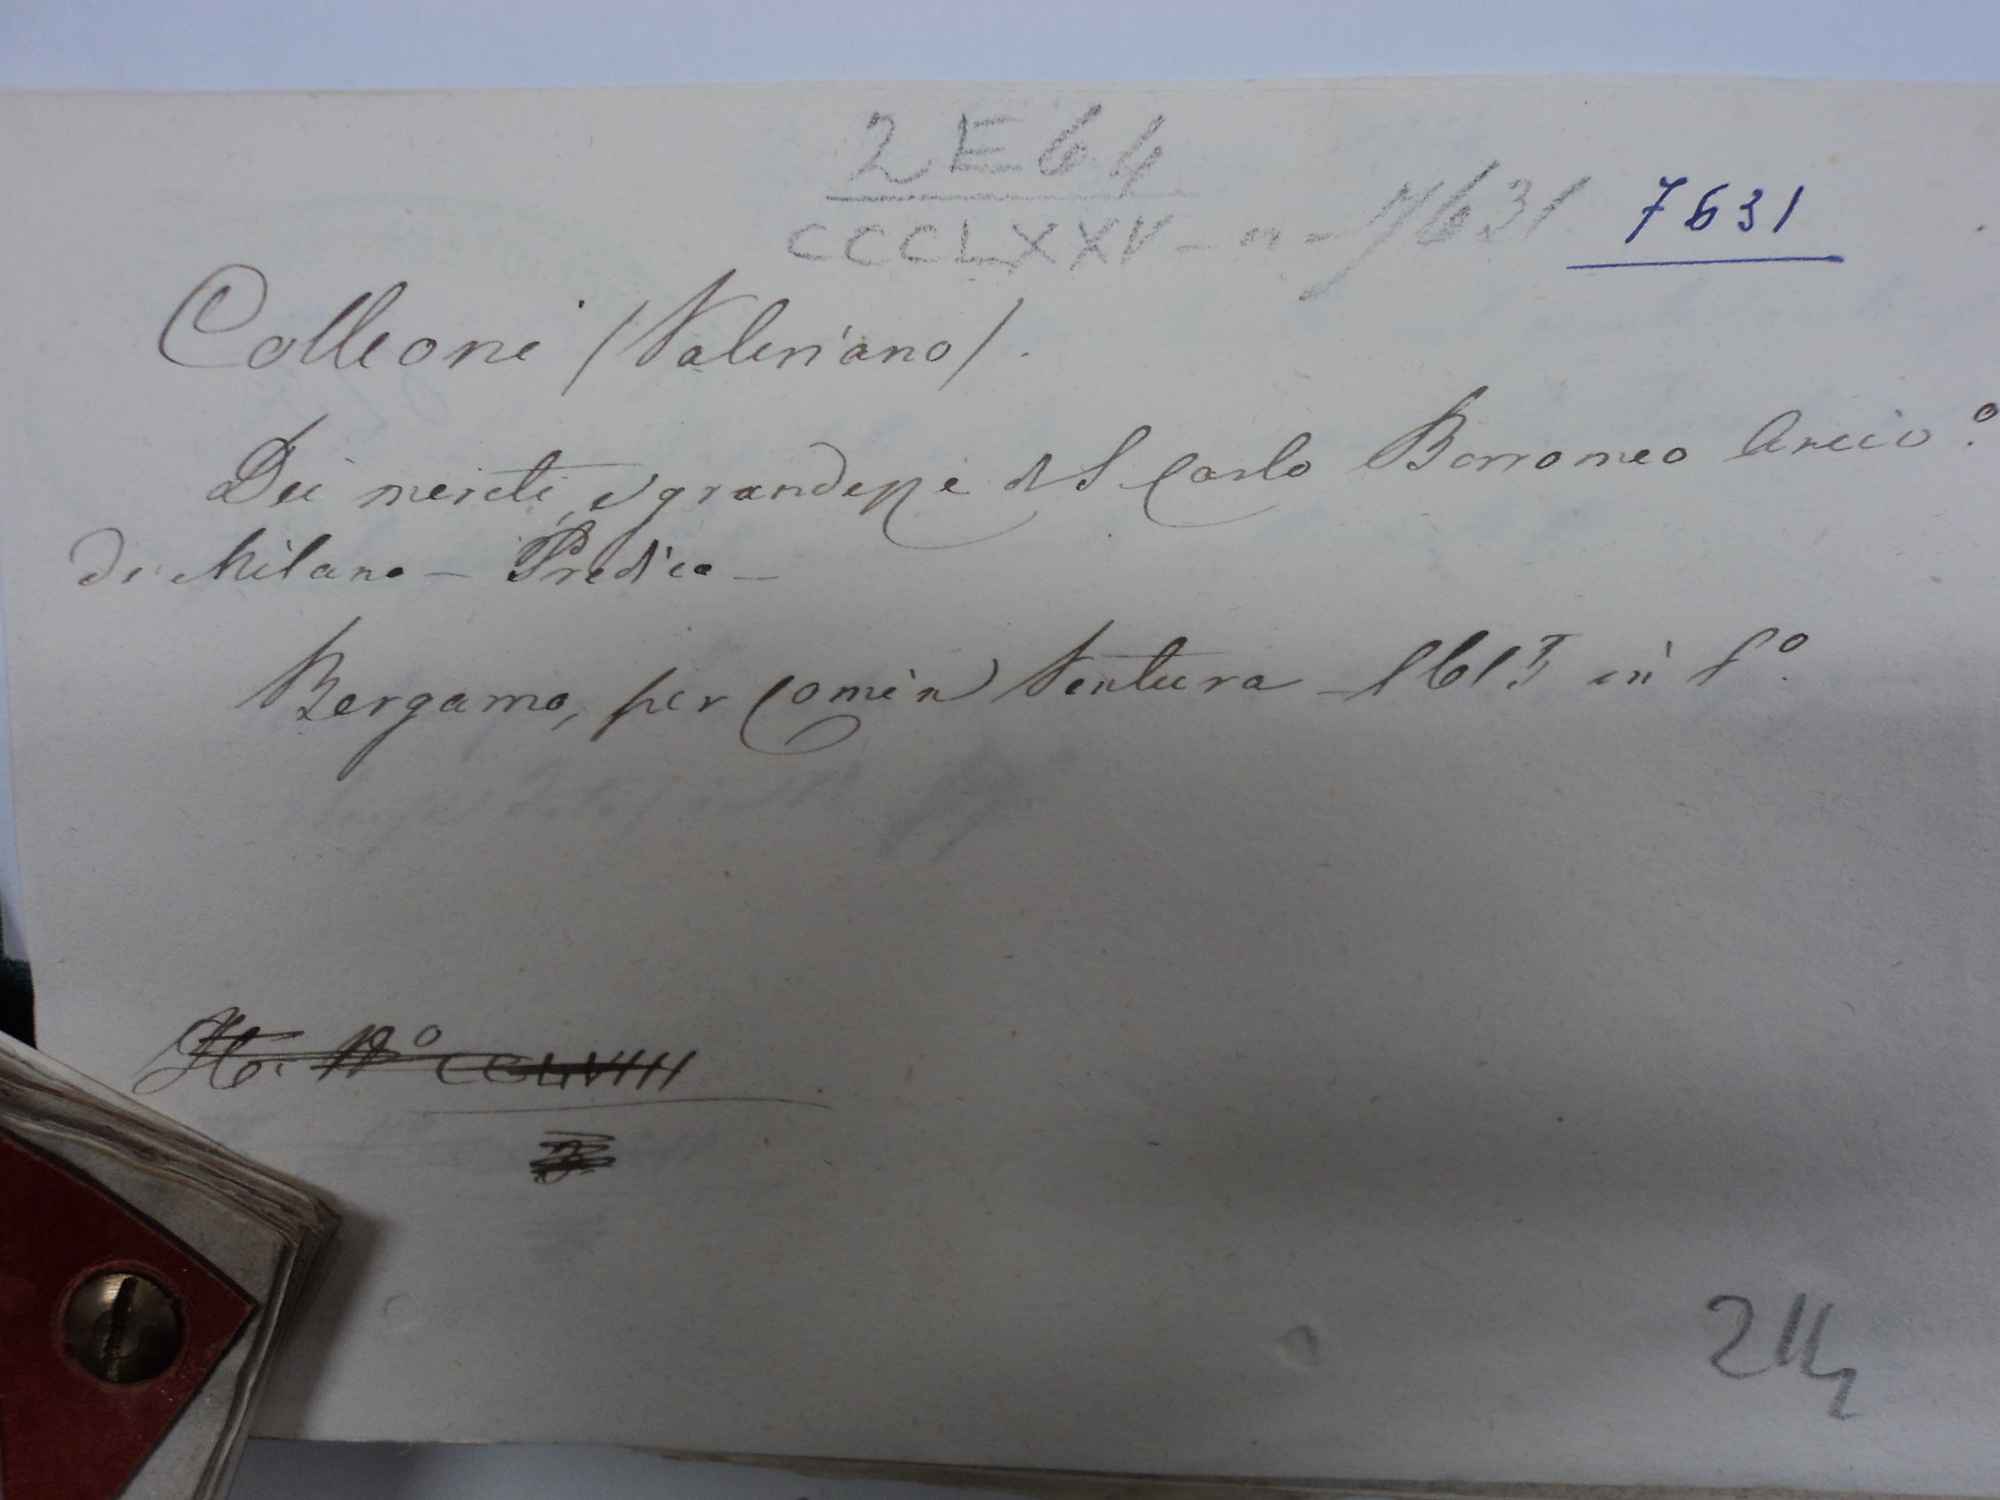 2 E 64
CCCLXXV - n - 7631 7631
Colleoni (Valeriano).
Dei meriti, e grandezze di S. Carlo Borromeo Arciv.º
di Milano - Predica -
Bergamo, per Comin Ventura - 1615 in f.º
Hb. Nº CCLVIII